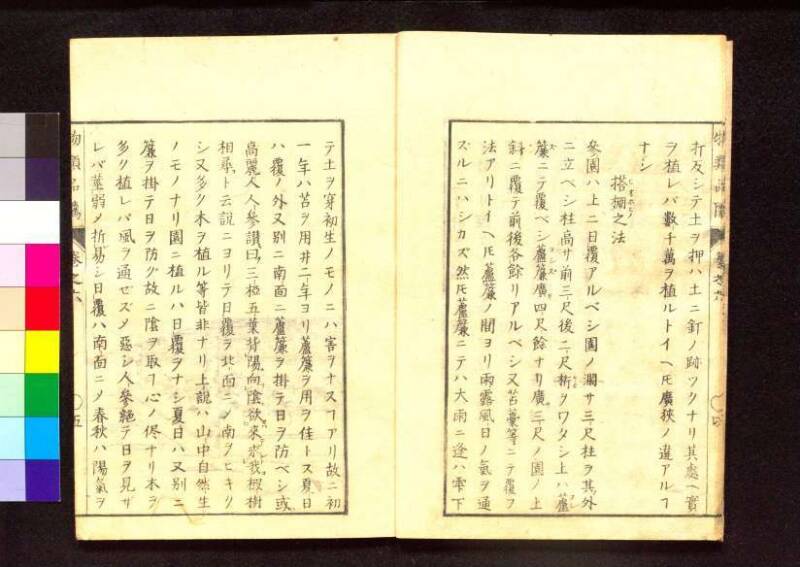 打反シテ土ヲ押ハ土ニ釘ノ跡ツクナリ其處ヘ實
ヲ植レバ數千萬ヲ植ルトイヘ𪜈廣狹ノ違アルヿ
ナシ
搭棚之法
參園ハ上ニ日覆アルベシ園ノ濶サ三尺柱ヲ其外
ニ立ベシ柱高サ前三尺後二尺桁ヲワタシ上ハ蘆
簾ニテ覆ベシ蘆簾廣四尺餘ナリ廣三尺ノ園ノ上
斜ニ覆テ前後各餘リアルベシ又苫藁等ニテ覆フ
法アリトイヘ𪜈蘆簾ノ間ヨリ雨露風日ノ氣ヲ通
ズルニハシカズ然𪜈蘆簾ニテハ大雨ニ逢ハ雫下
物類品隲 卷之六 ○四
テ土ヲ穿初生ノモノニハ害ヲナスヿアリ故ニ初
一年ハ苫ヲ用井二年ヨリ蘆簾ヲ用ヲ佳トス夏日
ハ覆ノ外又別ニ南面ニ蘆簾ヲ掛テ日ヲ防ベシ或
高麗人人參讃曰三椏五葉背陽向陰欲來求我椵樹
相尋ト云說ニヨリテ日覆ヲ北面ニノ南ヲヒキク
シ又多ク木ヲ植ル等皆非ナリ上說ハ山中自然生
ノモノナリ園ニ植ルハ日覆ヲナシ夏日ハ又別ニ
簾ヲ掛テ日ヲ防グ故ニ陰ヲ取ヿ心ノ侭ナリ木ヲ
多ク植レバ風ヲ通ゼズメ惡シ人參絕テ日ヲ見ザ
レバ莖弱メ折易シ日覆ハ南面ニメ春秋ハ陽氣ヲ
物類品隲 卷之六 ○五